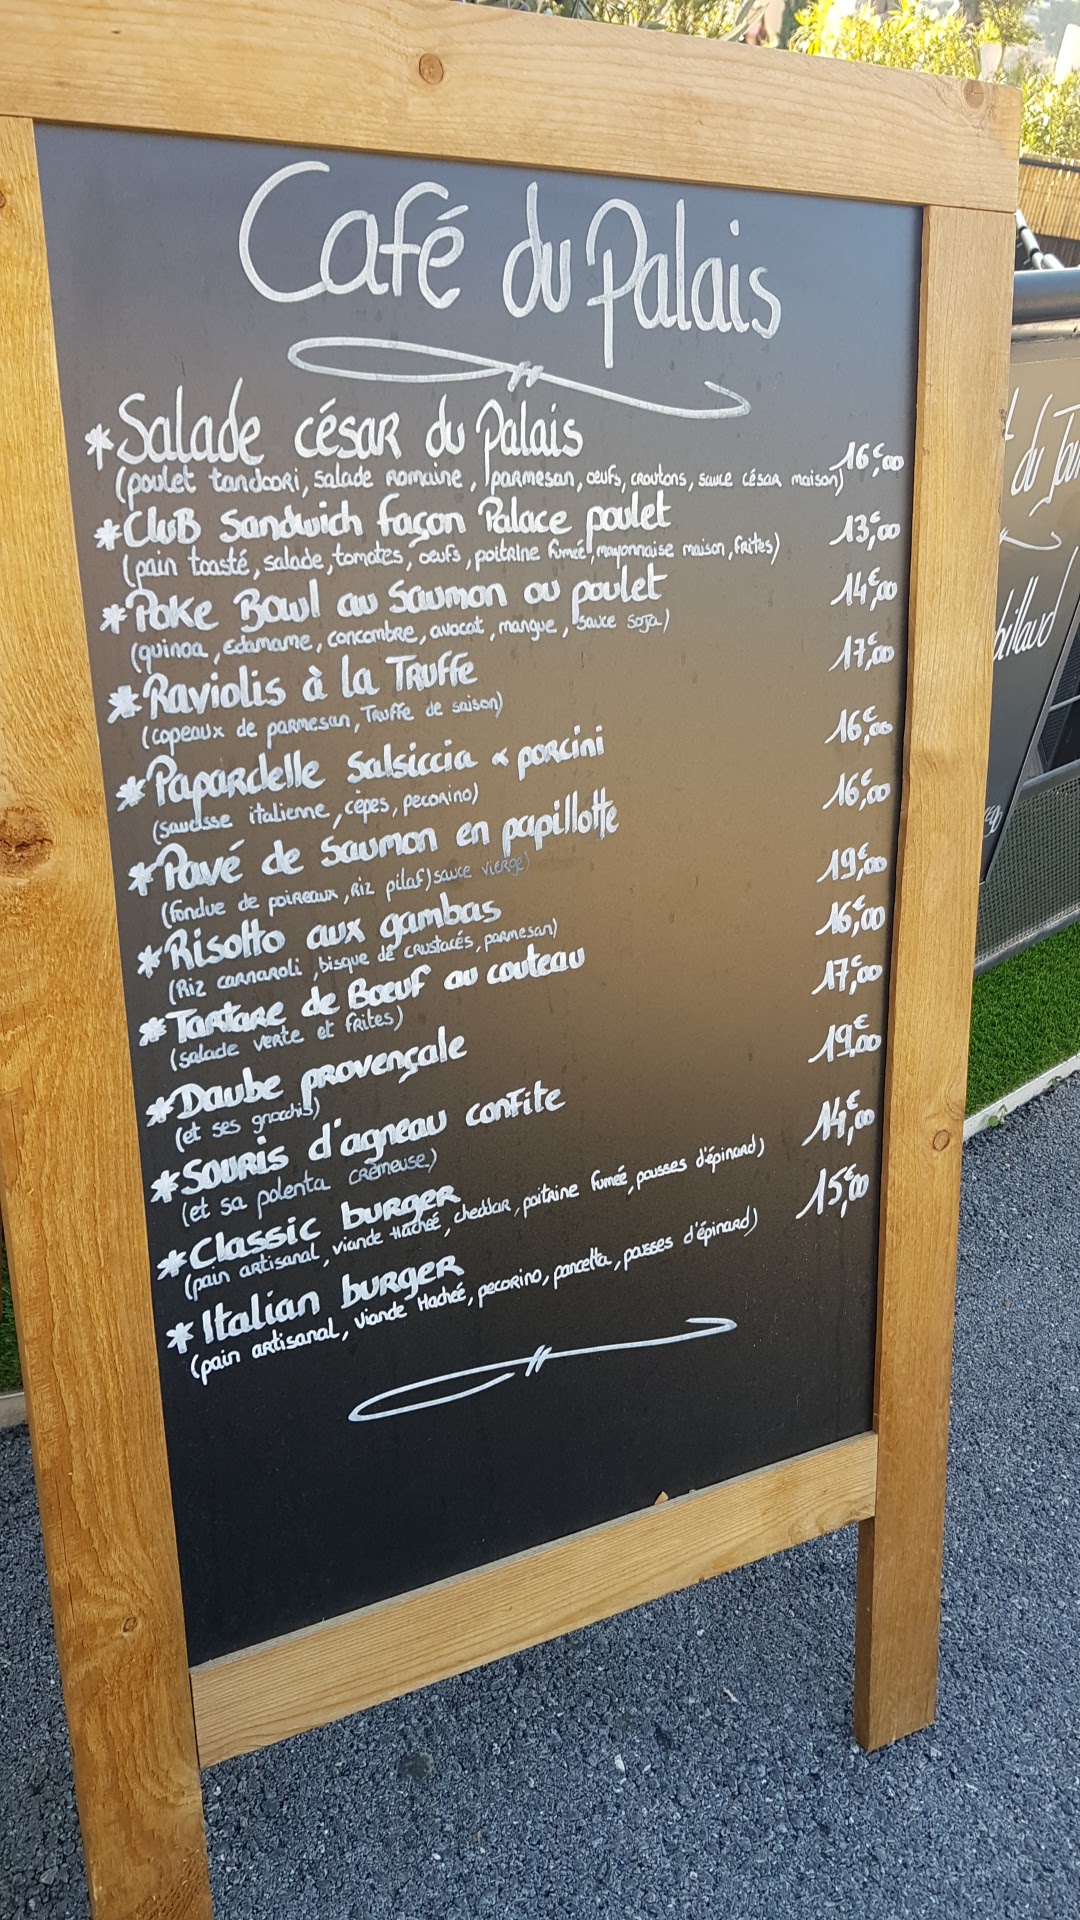 Café du Palais
*Salade césar du Palais 16€,00
(poulet tandoori, salade romaine, parmesan, oeufs, croutons, sauce césar maison)
*Club Sandwich façon Palace poulet 13€,00
(pain toasté, salade, tomates, oeufs, poitrine fumée, mayonnaise maison, frites)
*Poke Bowl au Saumon ou poulet 14€,00
(quinoa, edamame, concombre, avocat, mangue, sauce soja)
*Raviolis à la Truffe 17€,00
(copeaux de parmesan, Truffe de saison)
*Papardelle Salsiccia & porcini 16€,00
(saucisse italienne, cèpes, pecorino)
*Pavé de Saumon en papillotte 16€,00
(fondue de poireaux, riz pilaf) sauce vierge)
*Risotto aux gambas 19€,00
(Riz carnaroli, bisque de crustacés, parmesan)
*Tartare de Boeuf au couteau 16€,00
(salade verte et frites)
*Daube provençale 17€,00
(et ses gnocchis)
*Souris d'agneau confite 19€,00
(et sa polenta crémeuse)
*Classic burger 14€,00
(pain artisanal, viande Hachée, cheddar, poitrine fumée, pousses d'épinard)
*Italian burger 15€,00
(pain artisanal, viande Hachée, pecorino, pancetta, pousses d'épinard)
du